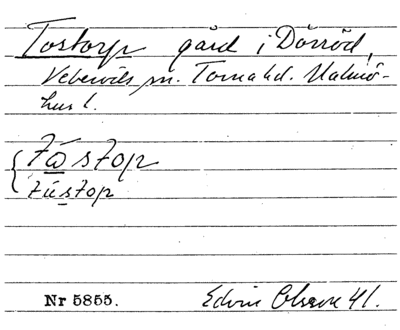 Tostorp gård i Dörröd,
Veberöds sn. Torna hd. Malmö-
hus l.
tåstop
tústop
Nr 5855.
Edvin Olsson 41.